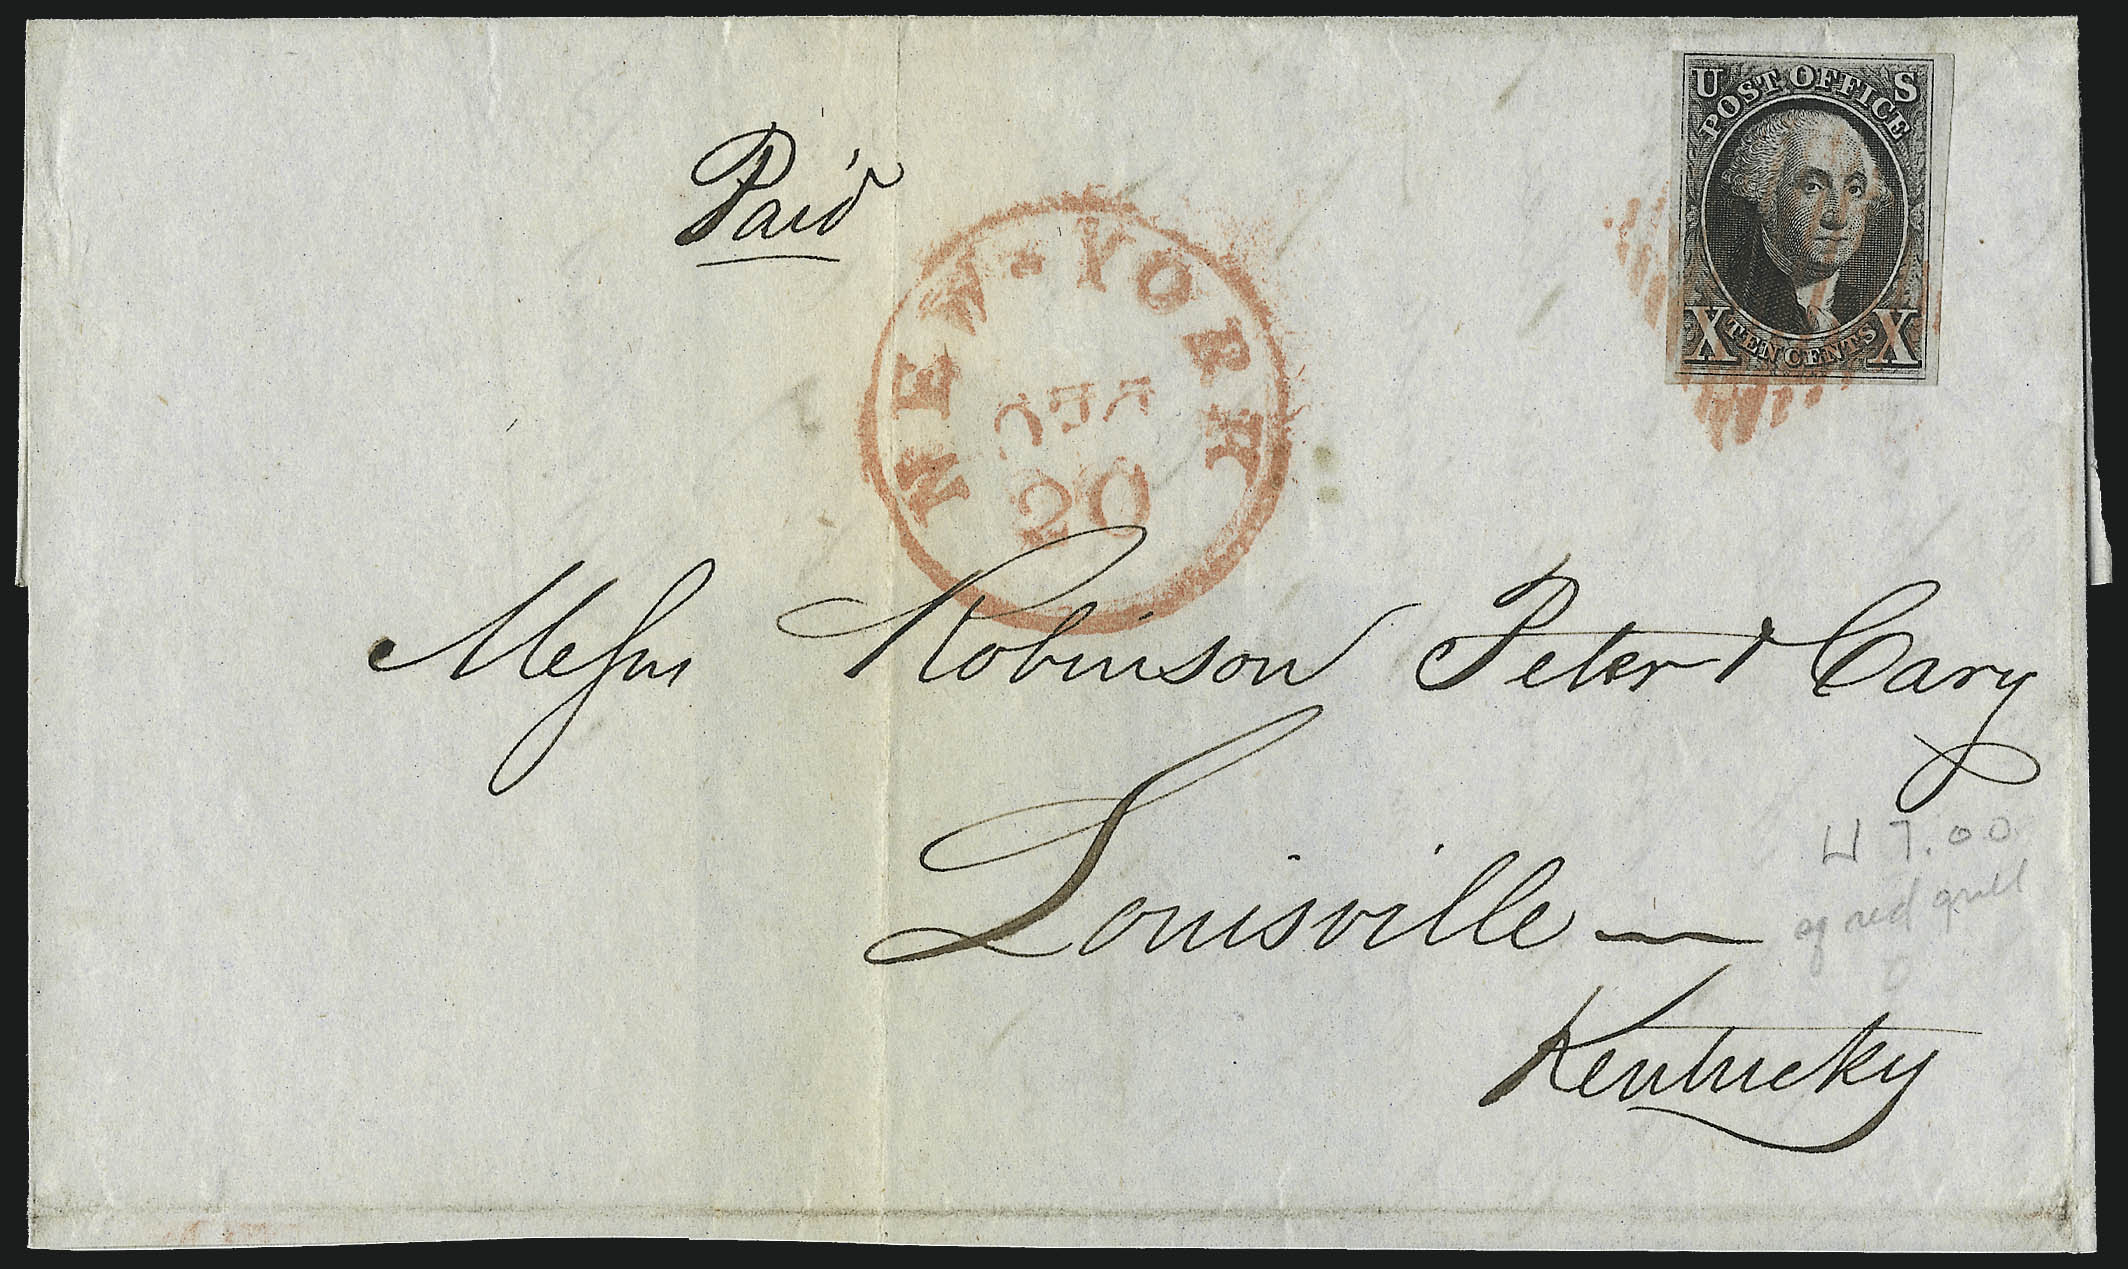 Paid
U S
POST OFFICE
X TEN CENTS X
NEW-YORK
20
Messrs Robinson Peter & Cary
Louisville —
Kentucky
7.00
red grill